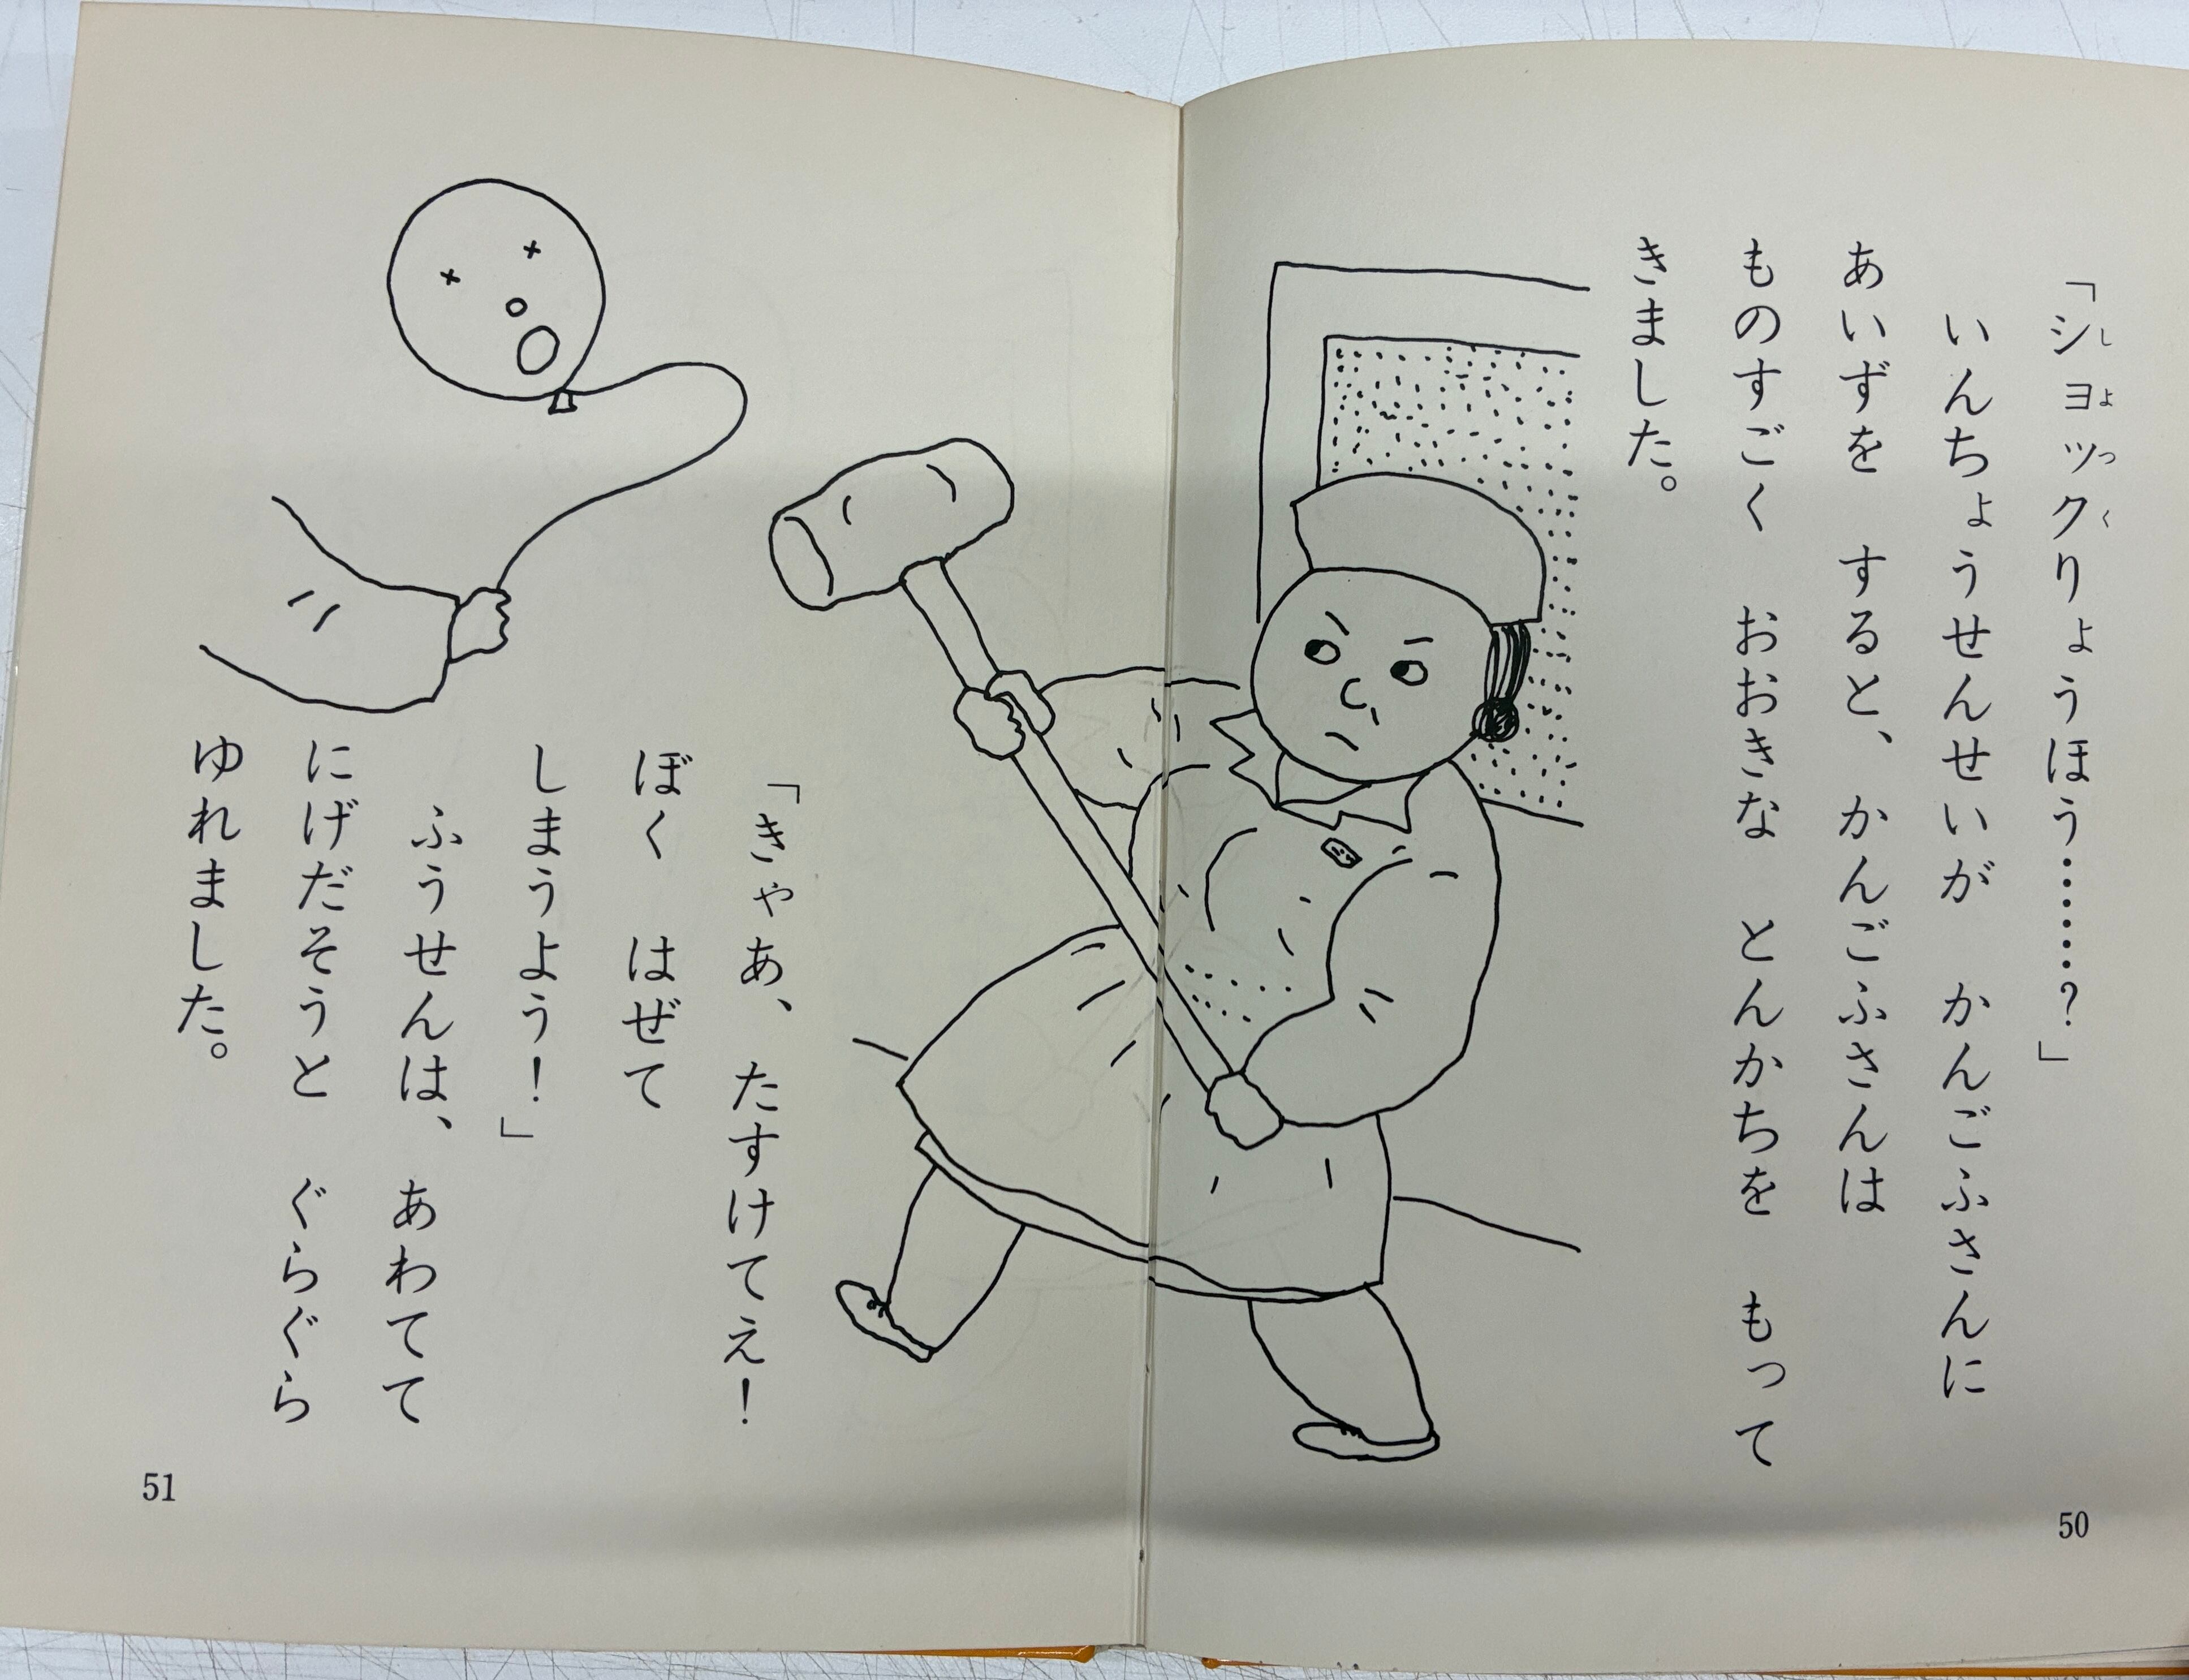 「ショックりょうほう………？」
しよつく
いんちょうせんせいが　かんごふさんに
あいずを　すると、かんごふさんは
ものすごく　おおきな　とんかちを　もって
きました。
50
「きゃあ、たすけてえ！
ぼく　はぜて
しまうよう！」
ふうせんは、あわてて
にげだそうと　ぐらぐら
ゆれました。
51